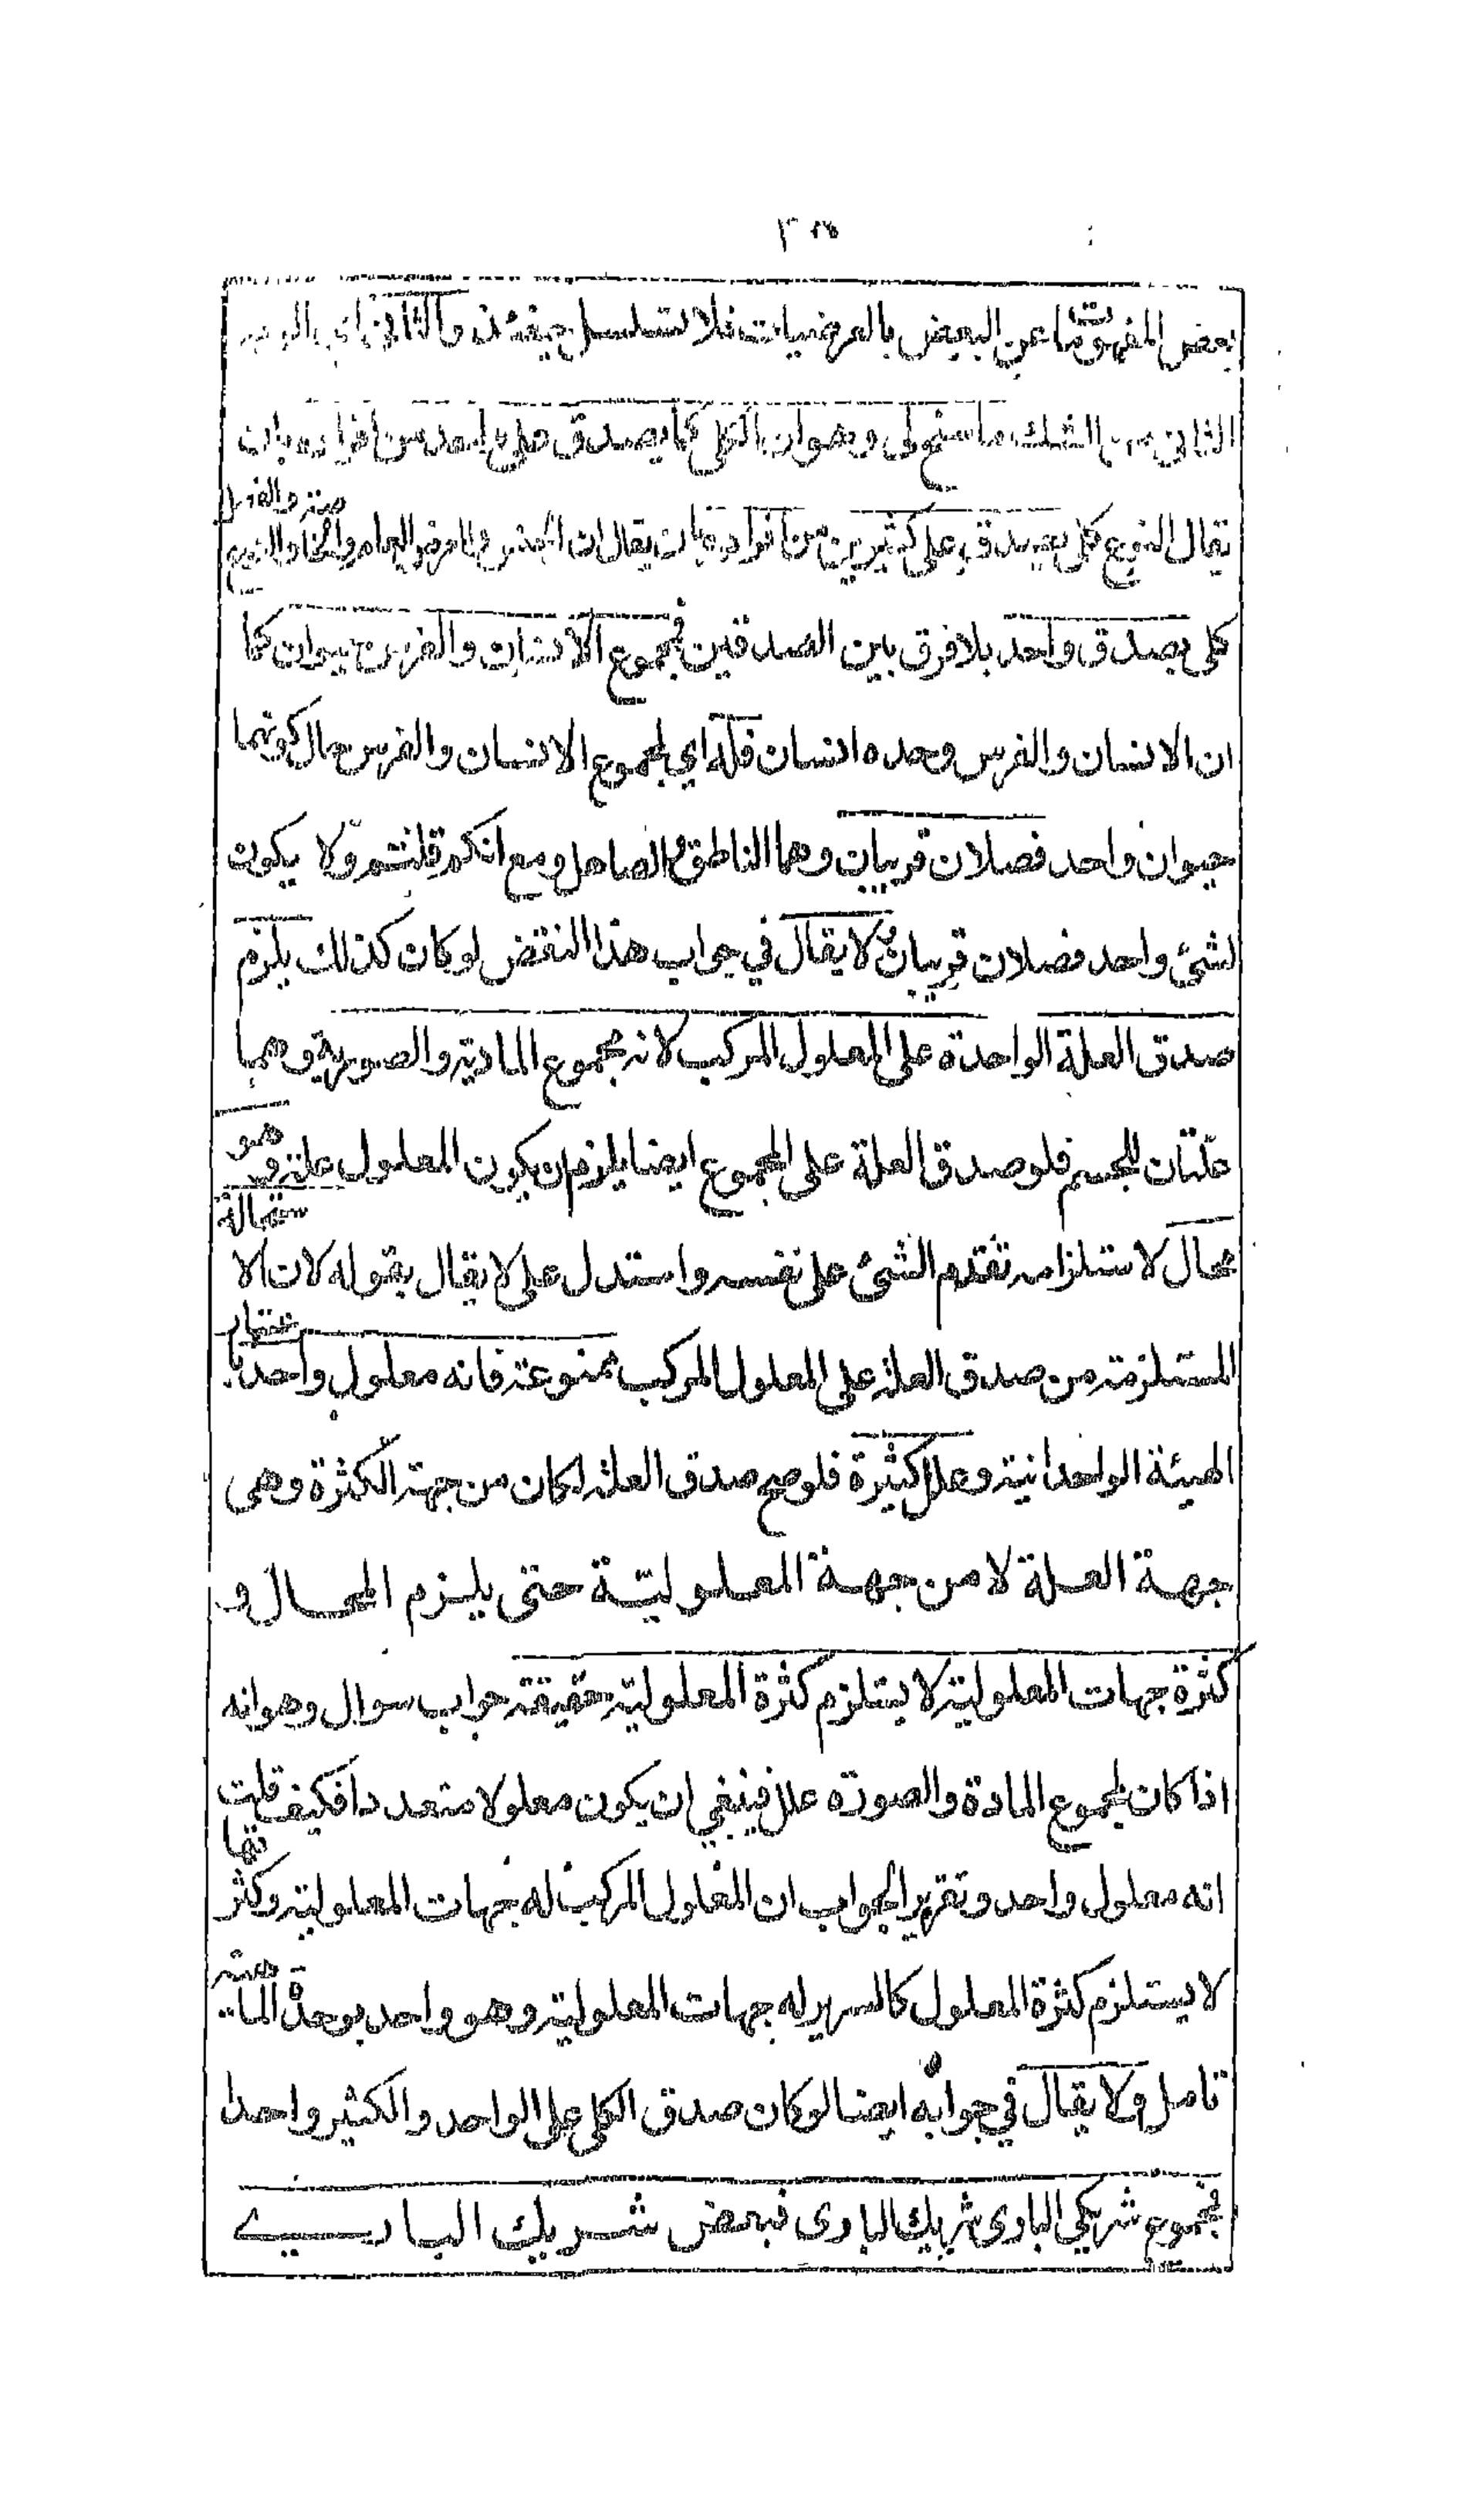 بعض المفهومات عن البعض بالعرضيات فلا تسلسل حينئذ والثاني اي
الثاني من الشك ما سنح لي وهو ان الكلي كما يصدق على واحد من افراده بان
يقال النوع كلي يصدق على كثيرين من افراده بان يقال ان الجنس والعرض العام والخاصة والفصل والنوع
كلي يصدق واحد بلا فرق بين الصدقين فمجموع الانسان والفرس حيوان كما
ان الانسان والفرس وحده انسان فله اي لمجموع الانسان والفرس حال كونهما
حيوان واحد فصلان قريبان وهما الناطق والصاهل ومع انكم قلتم ولا يكون
لشئ واحد فصلان قريبان لا يقال في جواب هذا النقض لو كان كذلك يلزم
صدق العلة الواحدة على المعلول المركب لانه مجموع المادية والصورية وهما
علتان للجسم فلو صدق العلة على المجموع ايضا يلزم ان يكون المعلول علة وهو
محال لاستلزامه تقدم الشئ على نفسه واستدل على لا يقال بقوله لان الاستحالة
المستلزمة من صدق العلة على المعلول المركب ممنوعة فانه معلول واحد باعتبار
الهيئة الواحدانية وعلل كثيرة فلو صح صدق العلة لكان من جهة الكثرة وهى
جهة العلة لا من جهة المعلولية حتى يلزم المحال و
كثرة جهات المعلولية لا يستلزم كثرة المعلولية حقيقة جواب سوال وهو انه
اذا كان لمجموع المادة والصورة علل فينبغي ان يكون معلولا متعددا فكيف قلت
انه معلول واحد وتقرير الجواب ان المعلول المركب له جهات المعلولية وكثرتها
لا يستلزم كثرة المعلول كالسرير له جهات المعلولية وهو واحد بوحدة الماهية
تامل ولا يقال في جوابه ايضا لو كان صدق الكلي على الواحد والكثير واحدا
فمجموع شريكي الباري شريك الباري فبعض شريك الباري